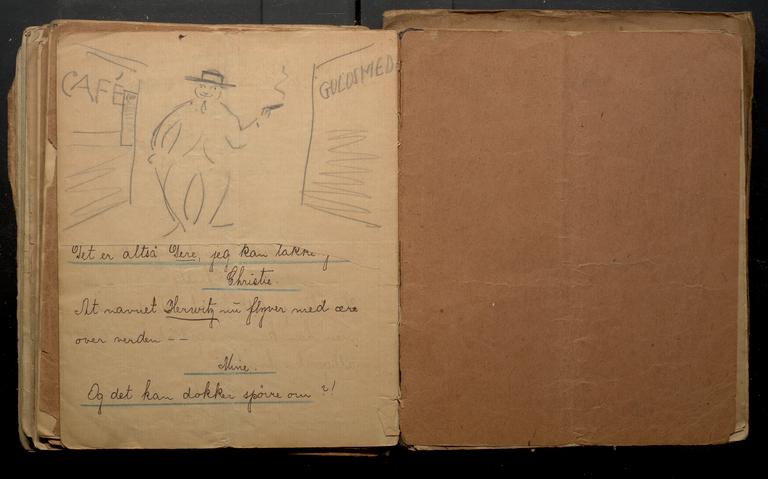 CAFÉ
GULDSMED
Det er altså Dere, jeg kan takke,
Christie.
At navnet Herwitz nu flyver med ære
over verden – –
Mine.
Og det kan dokker spørre om?!